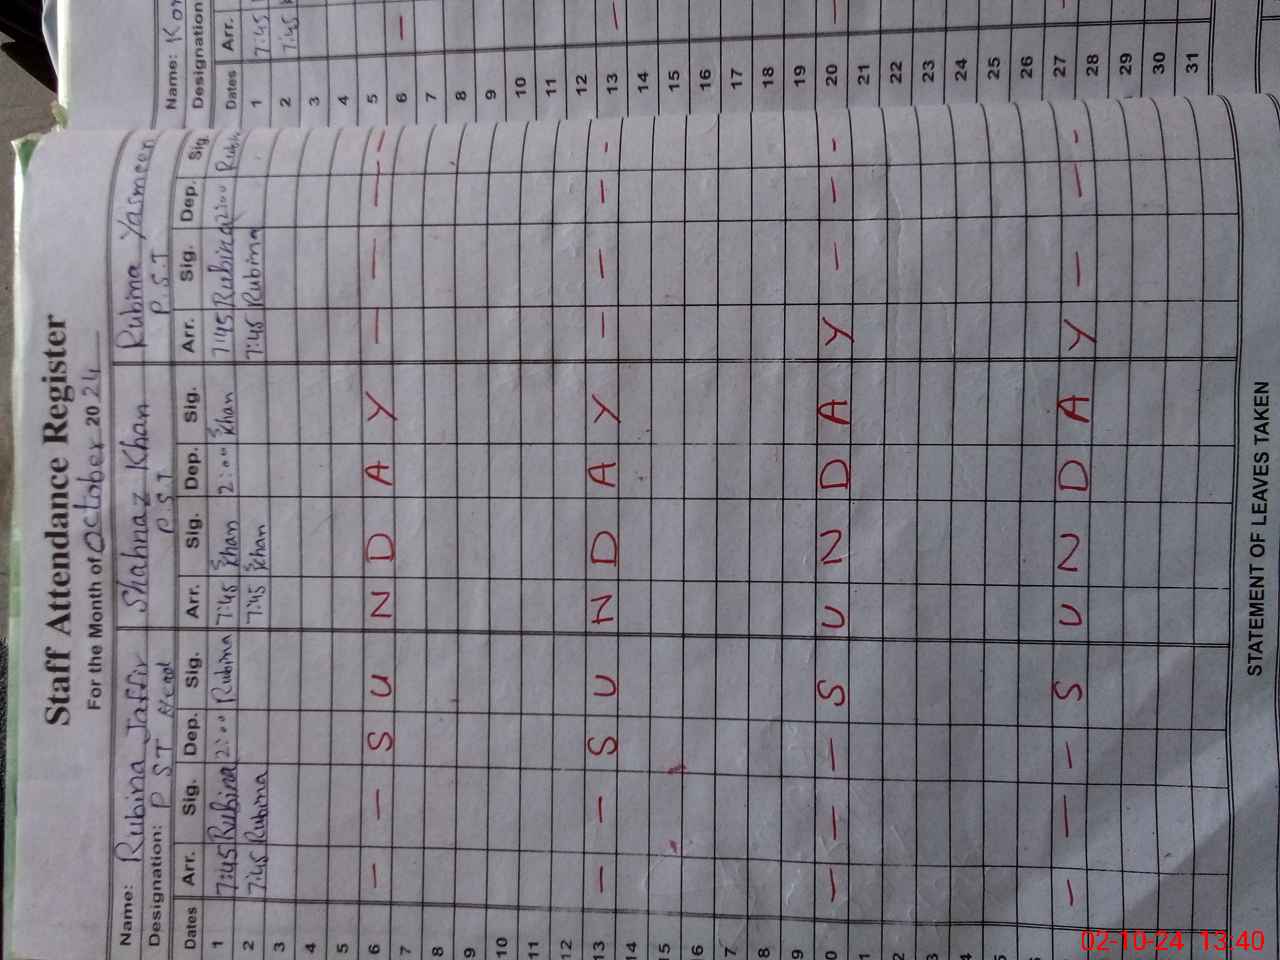 Staff Attendance Register
For the Month of October 2024
Name: Rubina Jaffir Shahnaz Khan Rubina Yasmeen
Designation: P S T Head P.S.T P.S.T
Dates Arr. Sig. Dep. Sig. Arr. Sig. Dep. Sig. Arr. Sig. Dep. Sig.
1 7:45 Rubina 2:00 Rubina 7:45 Khan 2:00 Khan 7:45 Rubina 2:00 Rubin
2 7:45 Rubina 7:45 Khan 7:45 Rubina
3
4
5
6 — — S U N D A Y — — — —
7
8
9
10
11
12
13 — — S U N D A Y — — — -
14
15
16
7
8
9
0 — — — S U N D A Y — — -
1
2
3
4
5
6
27 — — — S U N D A Y — — -
28
29
30
STATEMENT OF LEAVES TAKEN
Name: Ko
Designation
Dates Arr.
1 7:45
2 7:45
3
4
5
6 —
7
8
9
10
11
12
13 —
14
15
16
17
18
19
20 —
21
22
23
24
25
26
27
28
29
30
31
02-10-24 13:40